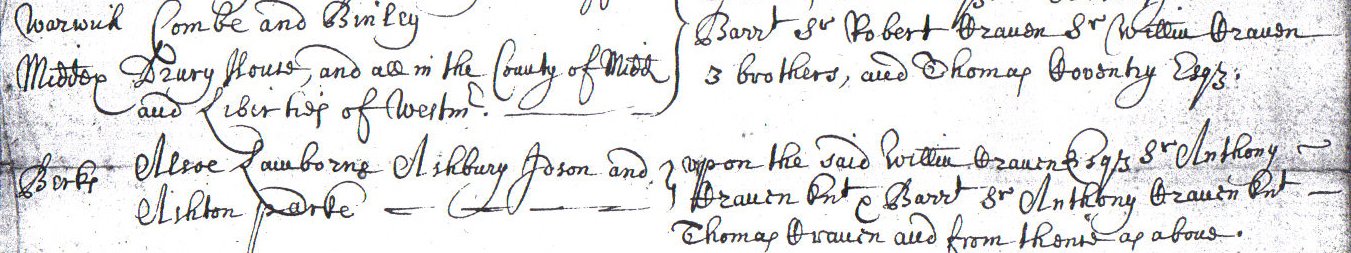 Warwick Combe and Binley
Barrt Sr Robert Craven Sr Willm Craven
Middex Drury House, and all in the County of Midd
3 brothers, and Thomas Coventry Esqz.
and Liberties of Westmr.
Berks Alsoe Lamborne Ashbury Joson and
upon the said Willm Craven Esqz Sr Anthony
Ashton parke
Craven Knt & Barrt Sr Anthony Craven Knt
Thomas Craven and from thence as above.